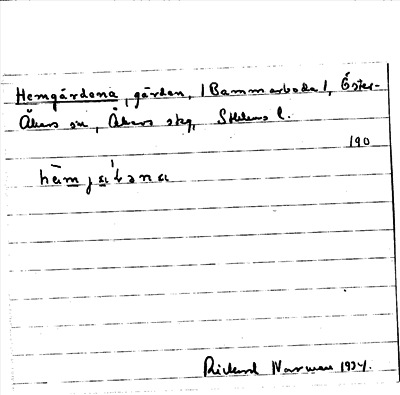 Hemgårdena, gärden, (Bammarboda), Öster-
Åkers sn, Åkers skg, Sthlms l.
190
Rickard Norman 1934.